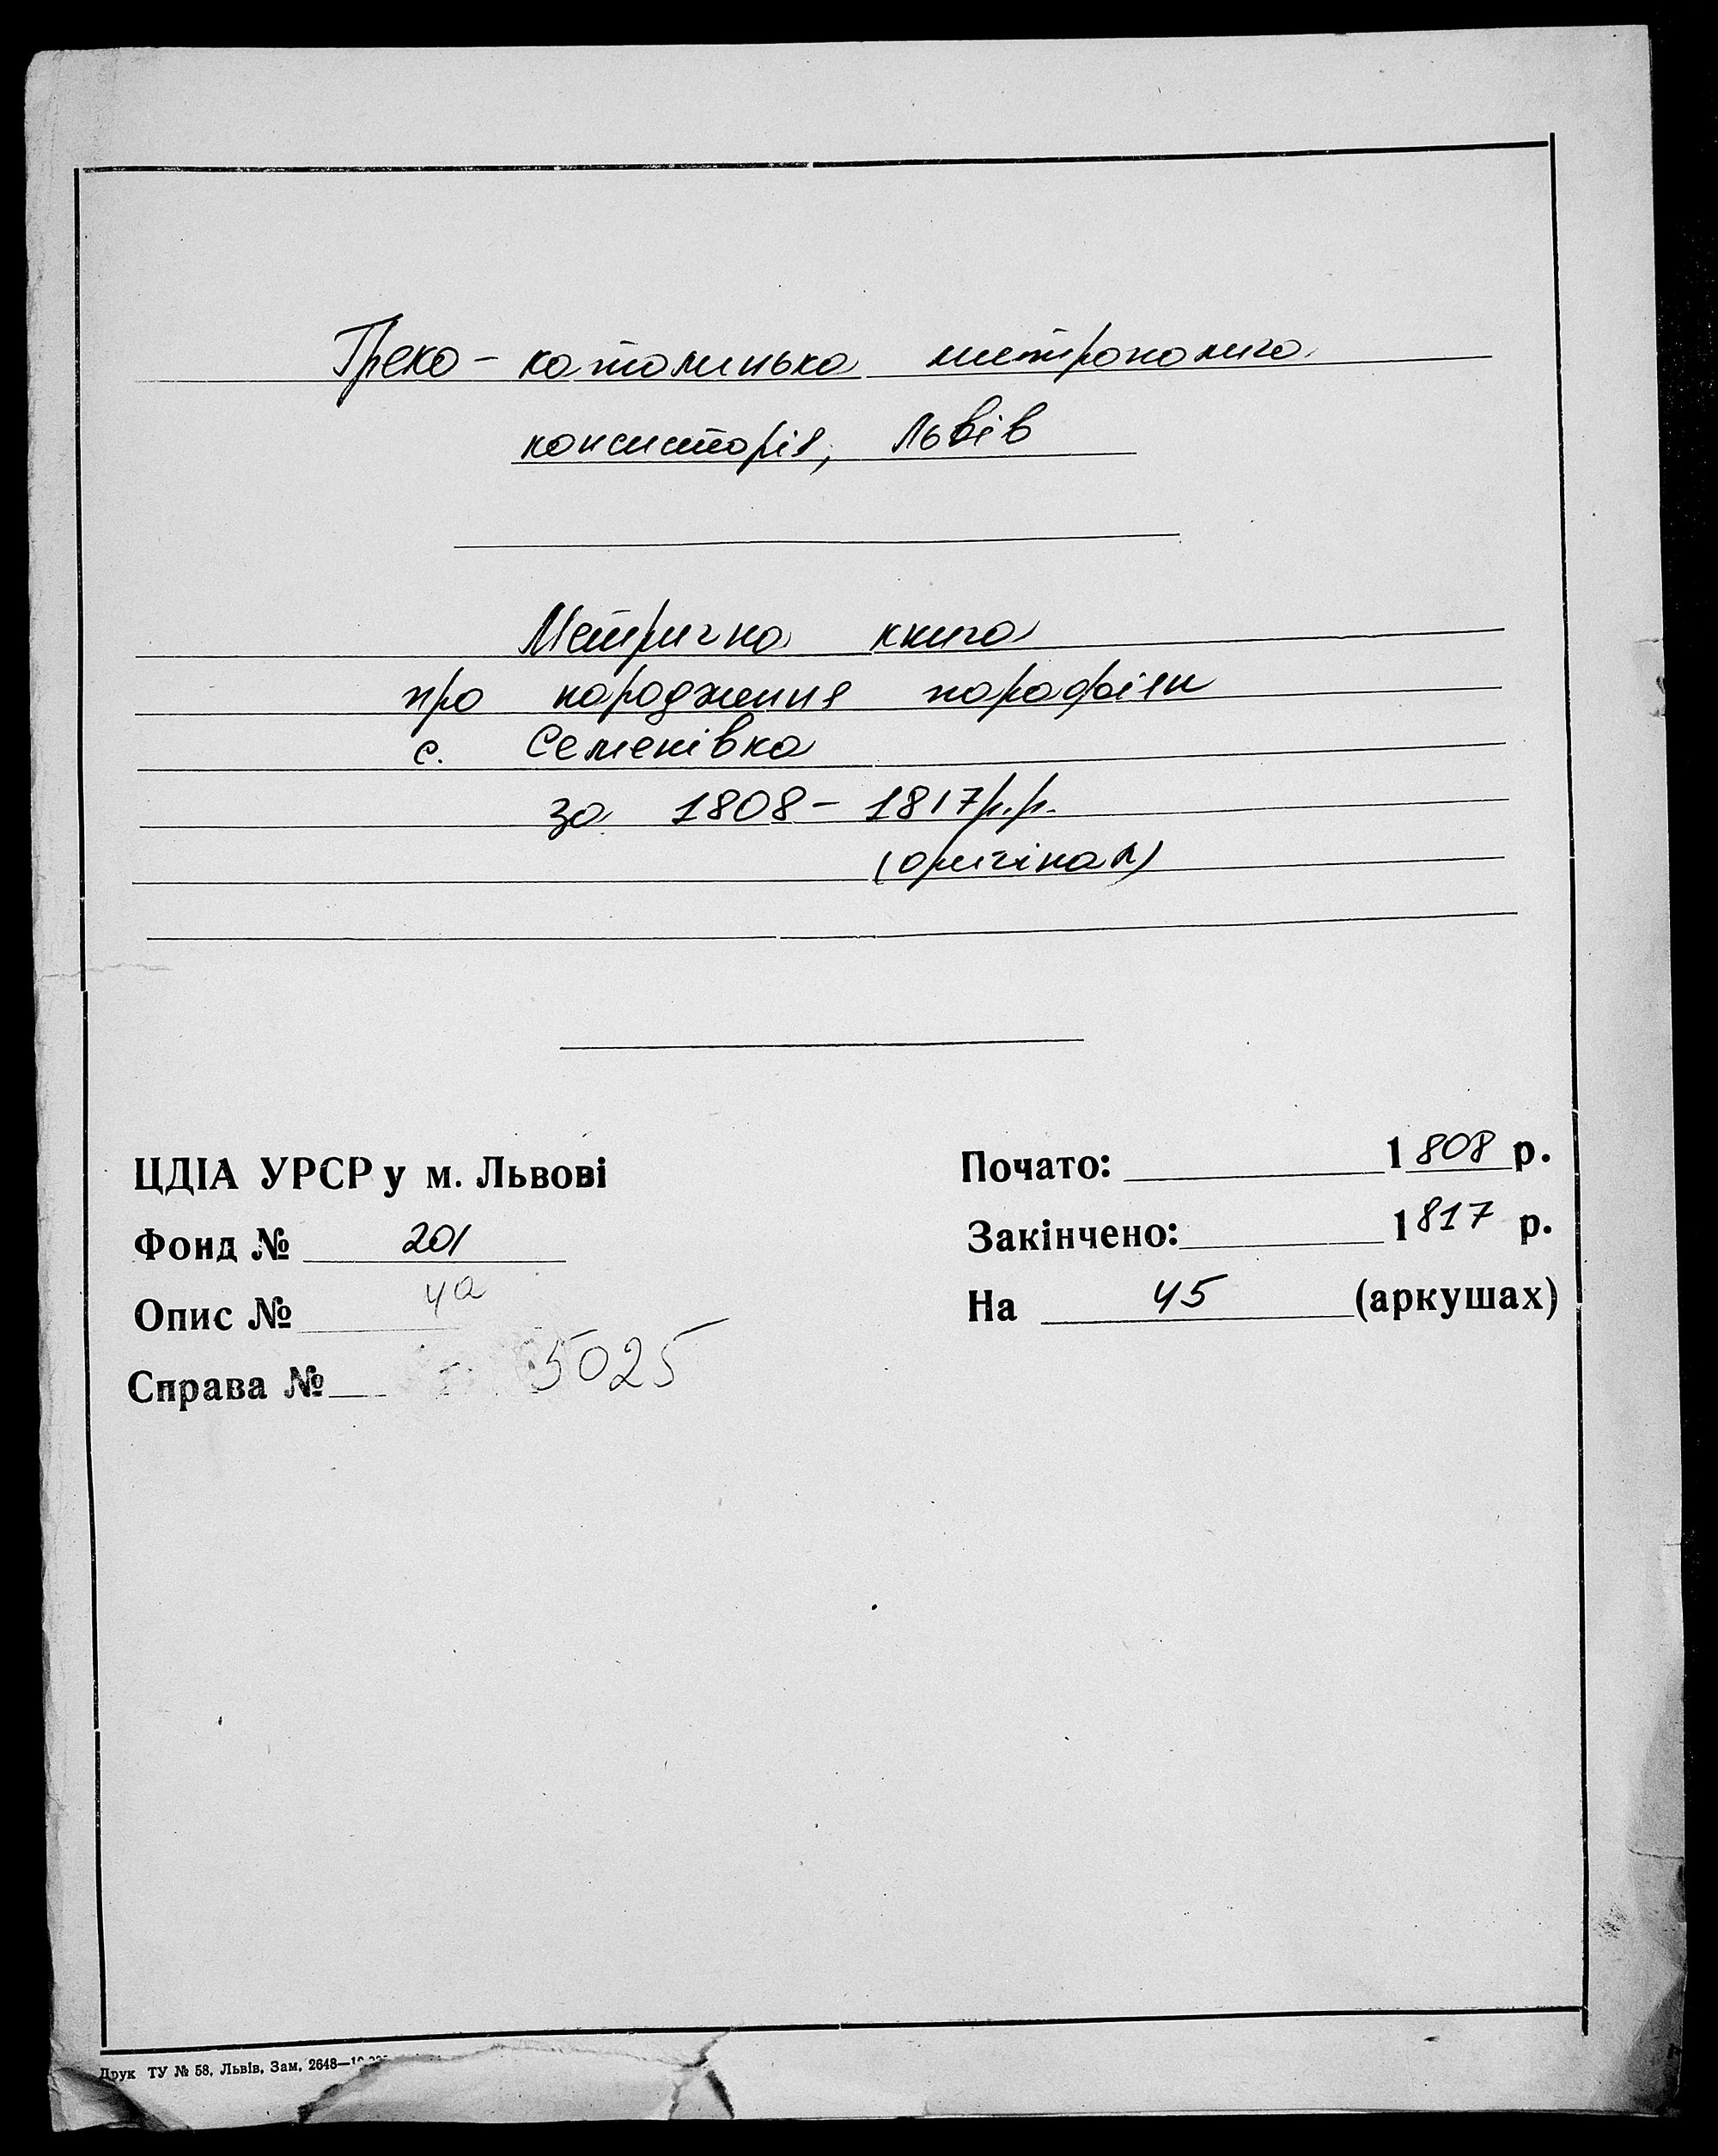 Греко-католицька митрополича
консисторія, Львів
Метрична книга
про народження парафіян
с. Семенівка
за 1808-1817р.р.
(оригінал)
ЦДІА УРСР у м. Львові
Фонд № 201
Опис № 4а
Справа № 5025
Почато: 1808 р.
Закінчено: 1817 р.
На 45 (аркушах)
Друк ТУ № 58, Львів, Зам. 2648—